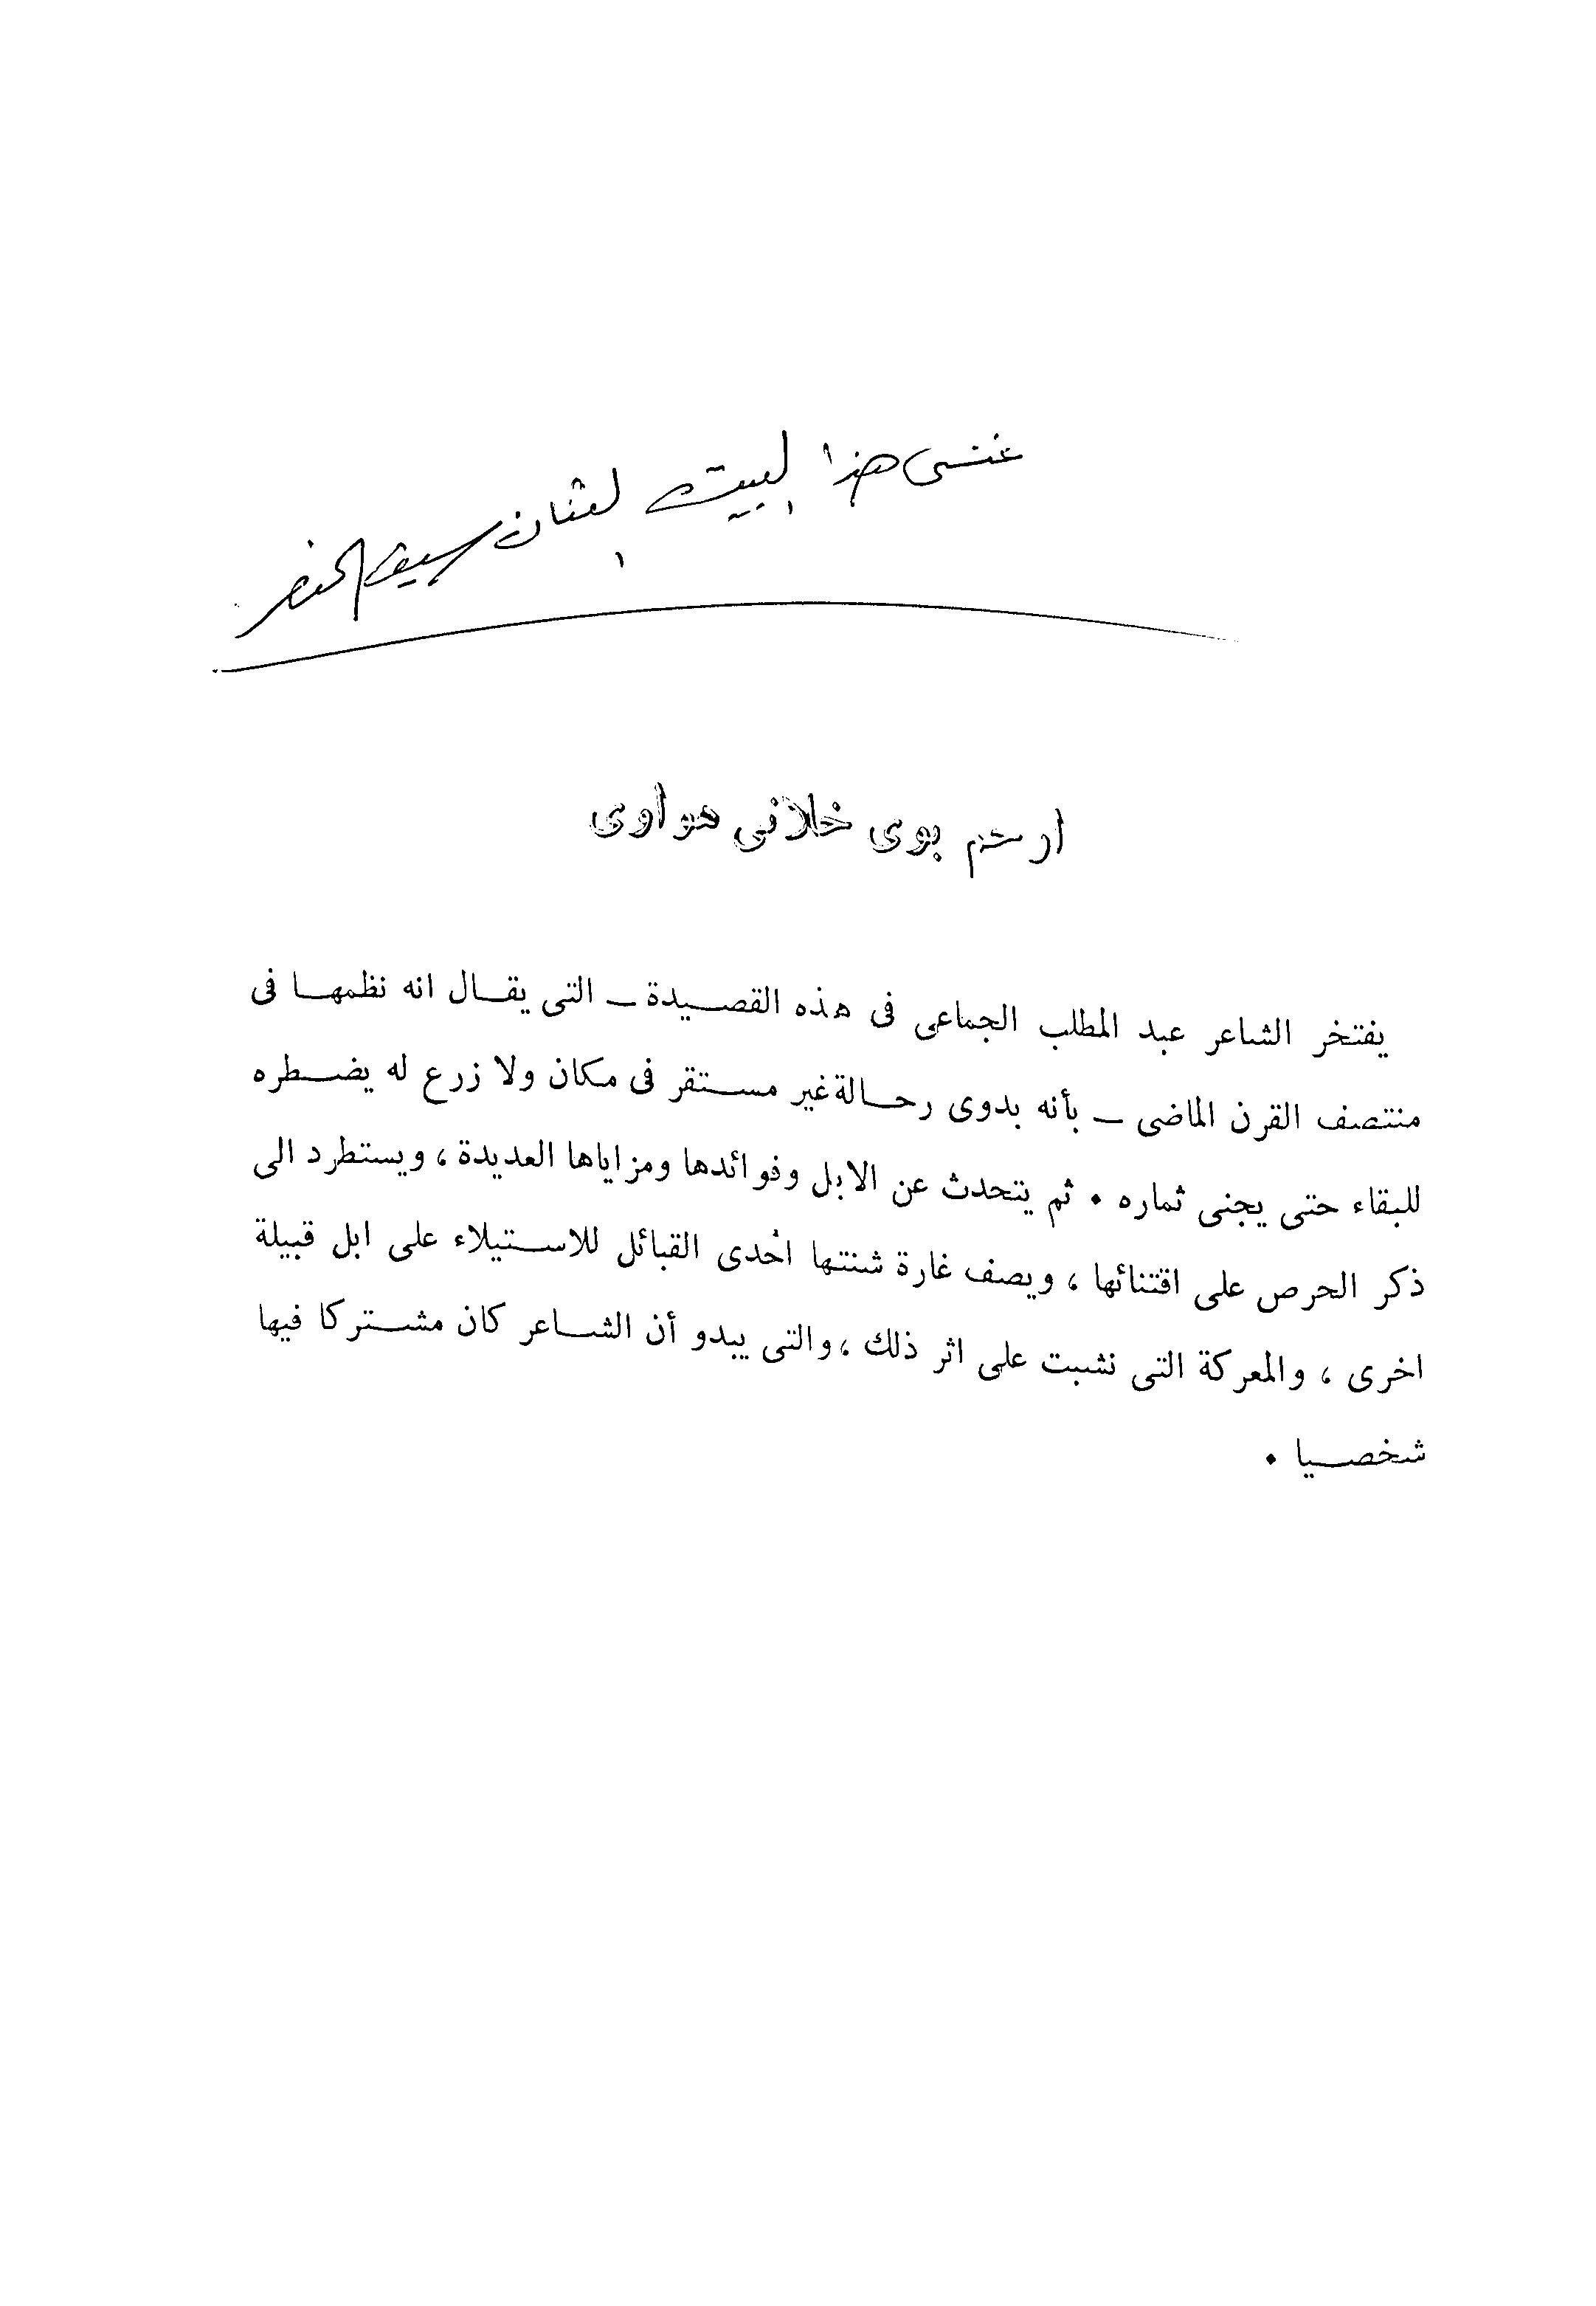 غنى هذا البيت الفنان سيف النصر
ارحم بوى خلانى هواوى
يفتخر الشاعر عبد المطلب الجماعى فى هذه القصيدة ـ التى يقال انه نظمها فى
منتصف القرن الماضى ـ بأنه بدوى رحالة غير مستقر فى مكان ولا زرع له يضطره
للبقاء حتى يجنى ثماره ٠ ثم يتحدث عن الابل وفوائدها ومزاياها العديدة ، ويستطرد الى
ذكر الحرص على اقتنائها ، ويصف غارة شنتها احدى القبائل للاستيلاء على ابل قبيلة
اخرى ، والمعركة التى نشبت على اثر ذلك ، والتى يبدو أن الشاعر كان مشتركا فيها
شخصيا ٠